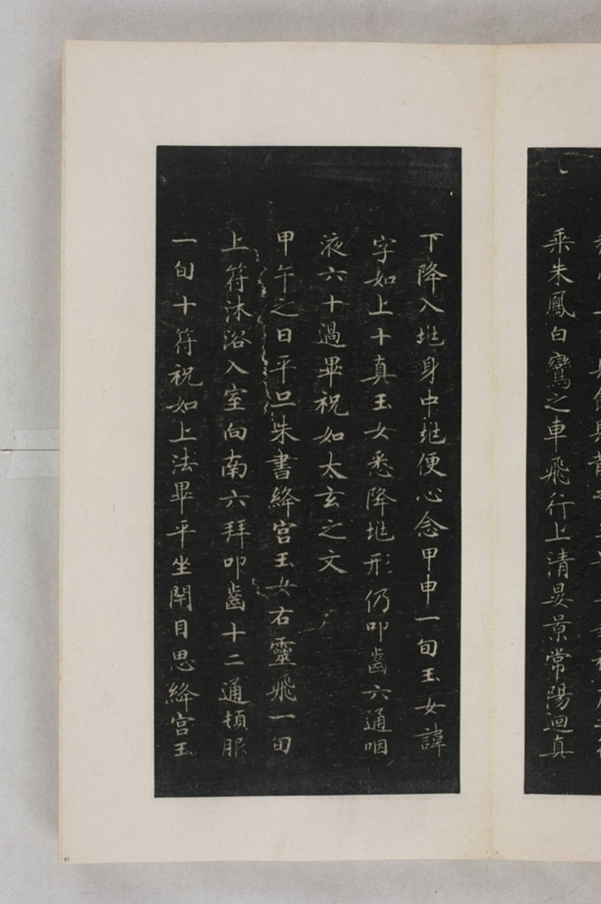 乘朱鳳白鸞之車飛行上清晏景常陽迴真
下降入埊身中埊便心念甲申一旬玉女諱
字如上十真玉女悉降埊形仍叩齒六通咽
液六十過畢祝如太玄之文
甲午之日平旦朱書絳宮玉女右靈飛一旬
上符沐浴入室向南六拜叩齒十二通頓服
一旬十符祝如上法畢平坐閇目思絳宮玉